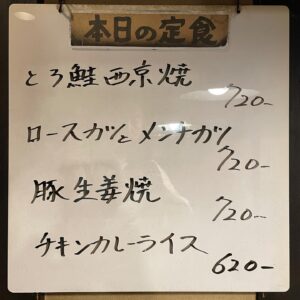 本日の定食
とろ鮭西京焼
720-
ロースカツとメンチカツ
720-
豚生姜焼
720-
チキンカレーライス
620-